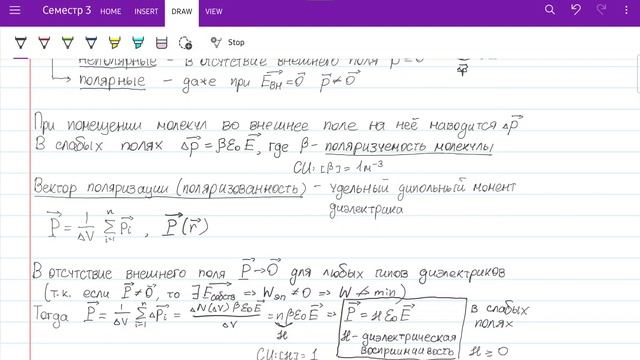 Семестр 3 HOME INSERT DRAW VIEW
Stop
неполярные – в отсутствие внешнего поля p⃗=0⃗
полярные – даже при E⃗вн=0⃗ p⃗≠0⃗
При помещении молекул во внешнее поле на неё наводится Δp⃗
В слабых полях Δp⃗=βε₀E⃗, где β – поляризуемость молекулы
СИ: [β]=1м⁻³
Вектор поляризации (поляризованность) – удельный дипольный момент
диэлектрика
P⃗ = 1/ΔV Σⁿᵢ₌₁ p⃗i , P⃗(r⃗)
В отсутствие внешнего поля P⃗→0⃗ для любых типов диэлектриков
(т.к. если P⃗≠0⃗, то ∃E⃗собств ⇒ Wэл ≠0 ⇒ W↛min)
Тогда P⃗ = 1/ΔV Σⁿᵢ₌₁ Δp⃗i = ΔN(ΔV)βε₀E⃗/ΔV = nβε₀E⃗ ⇒ P⃗=ϰε₀E⃗ в слабых
полях
ϰ
ϰ – диэлектрическая
восприимчивость
СИ: [ϰ]=1
ϰ≥0